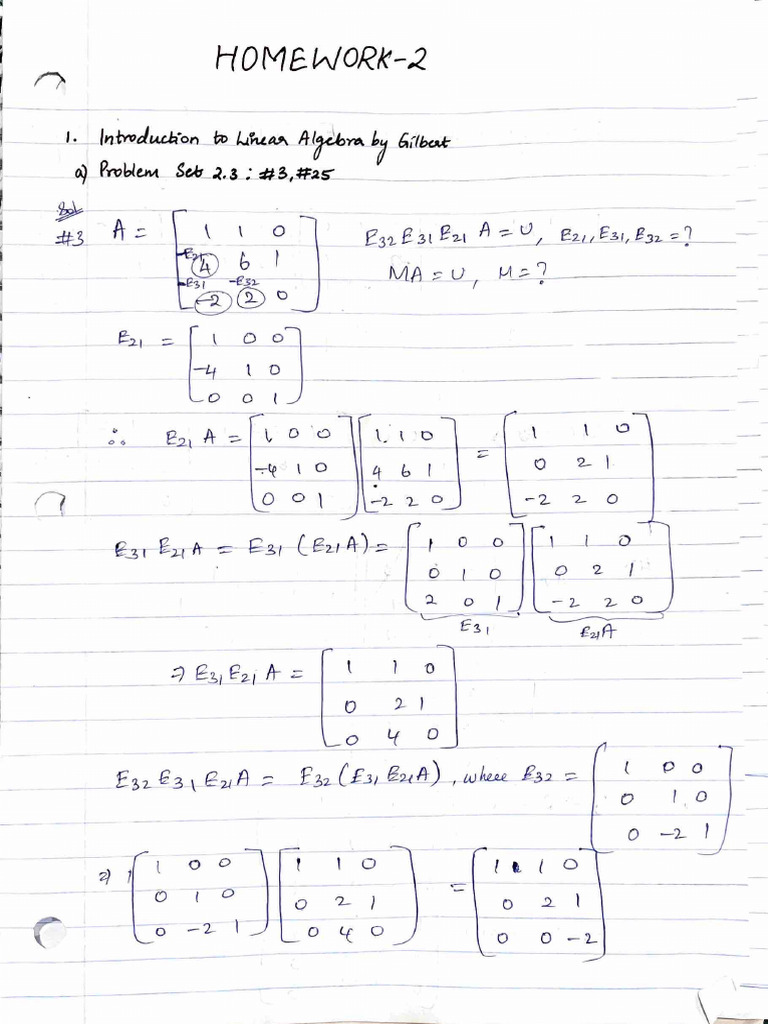 HOMEWORK-2
1. Introduction to Linear Algebra by Gilbert
a) Problem Set 2.3 : #3, #25
Sol
#3 A = [ 1 1 0
4 6 1
-2 2 0 ]
-E21
-E31 -E32
E32 E31 E21 A = U, E21, E31, E32 = ?
MA = U, M = ?
E21 = [ 1 0 0
-4 1 0
0 0 1 ]
∴ E21 A = [ 1 0 0 ] [ 1 1 0 ] = [ 1 1 0 ]
[ -4 1 0 ] [ 4 6 1 ] [ 0 2 1 ]
[ 0 0 1 ] [ -2 2 0 ] [ -2 2 0 ]
E31 E21 A = E31 (E21 A) = [ 1 0 0 ] [ 1 1 0 ]
[ 0 1 0 ] [ 0 2 1 ]
[ 2 0 1 ] [ -2 2 0 ]
E31 E21A
⇒ E31 E21 A = [ 1 1 0
0 2 1
0 4 0 ]
E32 E31 E21 A = E32 (E31 E21 A), where E32 = [ 1 0 0
0 1 0
0 -2 1 ]
⇒ [ 1 0 0 ] [ 1 1 0 ] = [ 1 1 0 ]
[ 0 1 0 ] [ 0 2 1 ] [ 0 2 1 ]
[ 0 -2 1 ] [ 0 4 0 ] [ 0 0 -2 ]